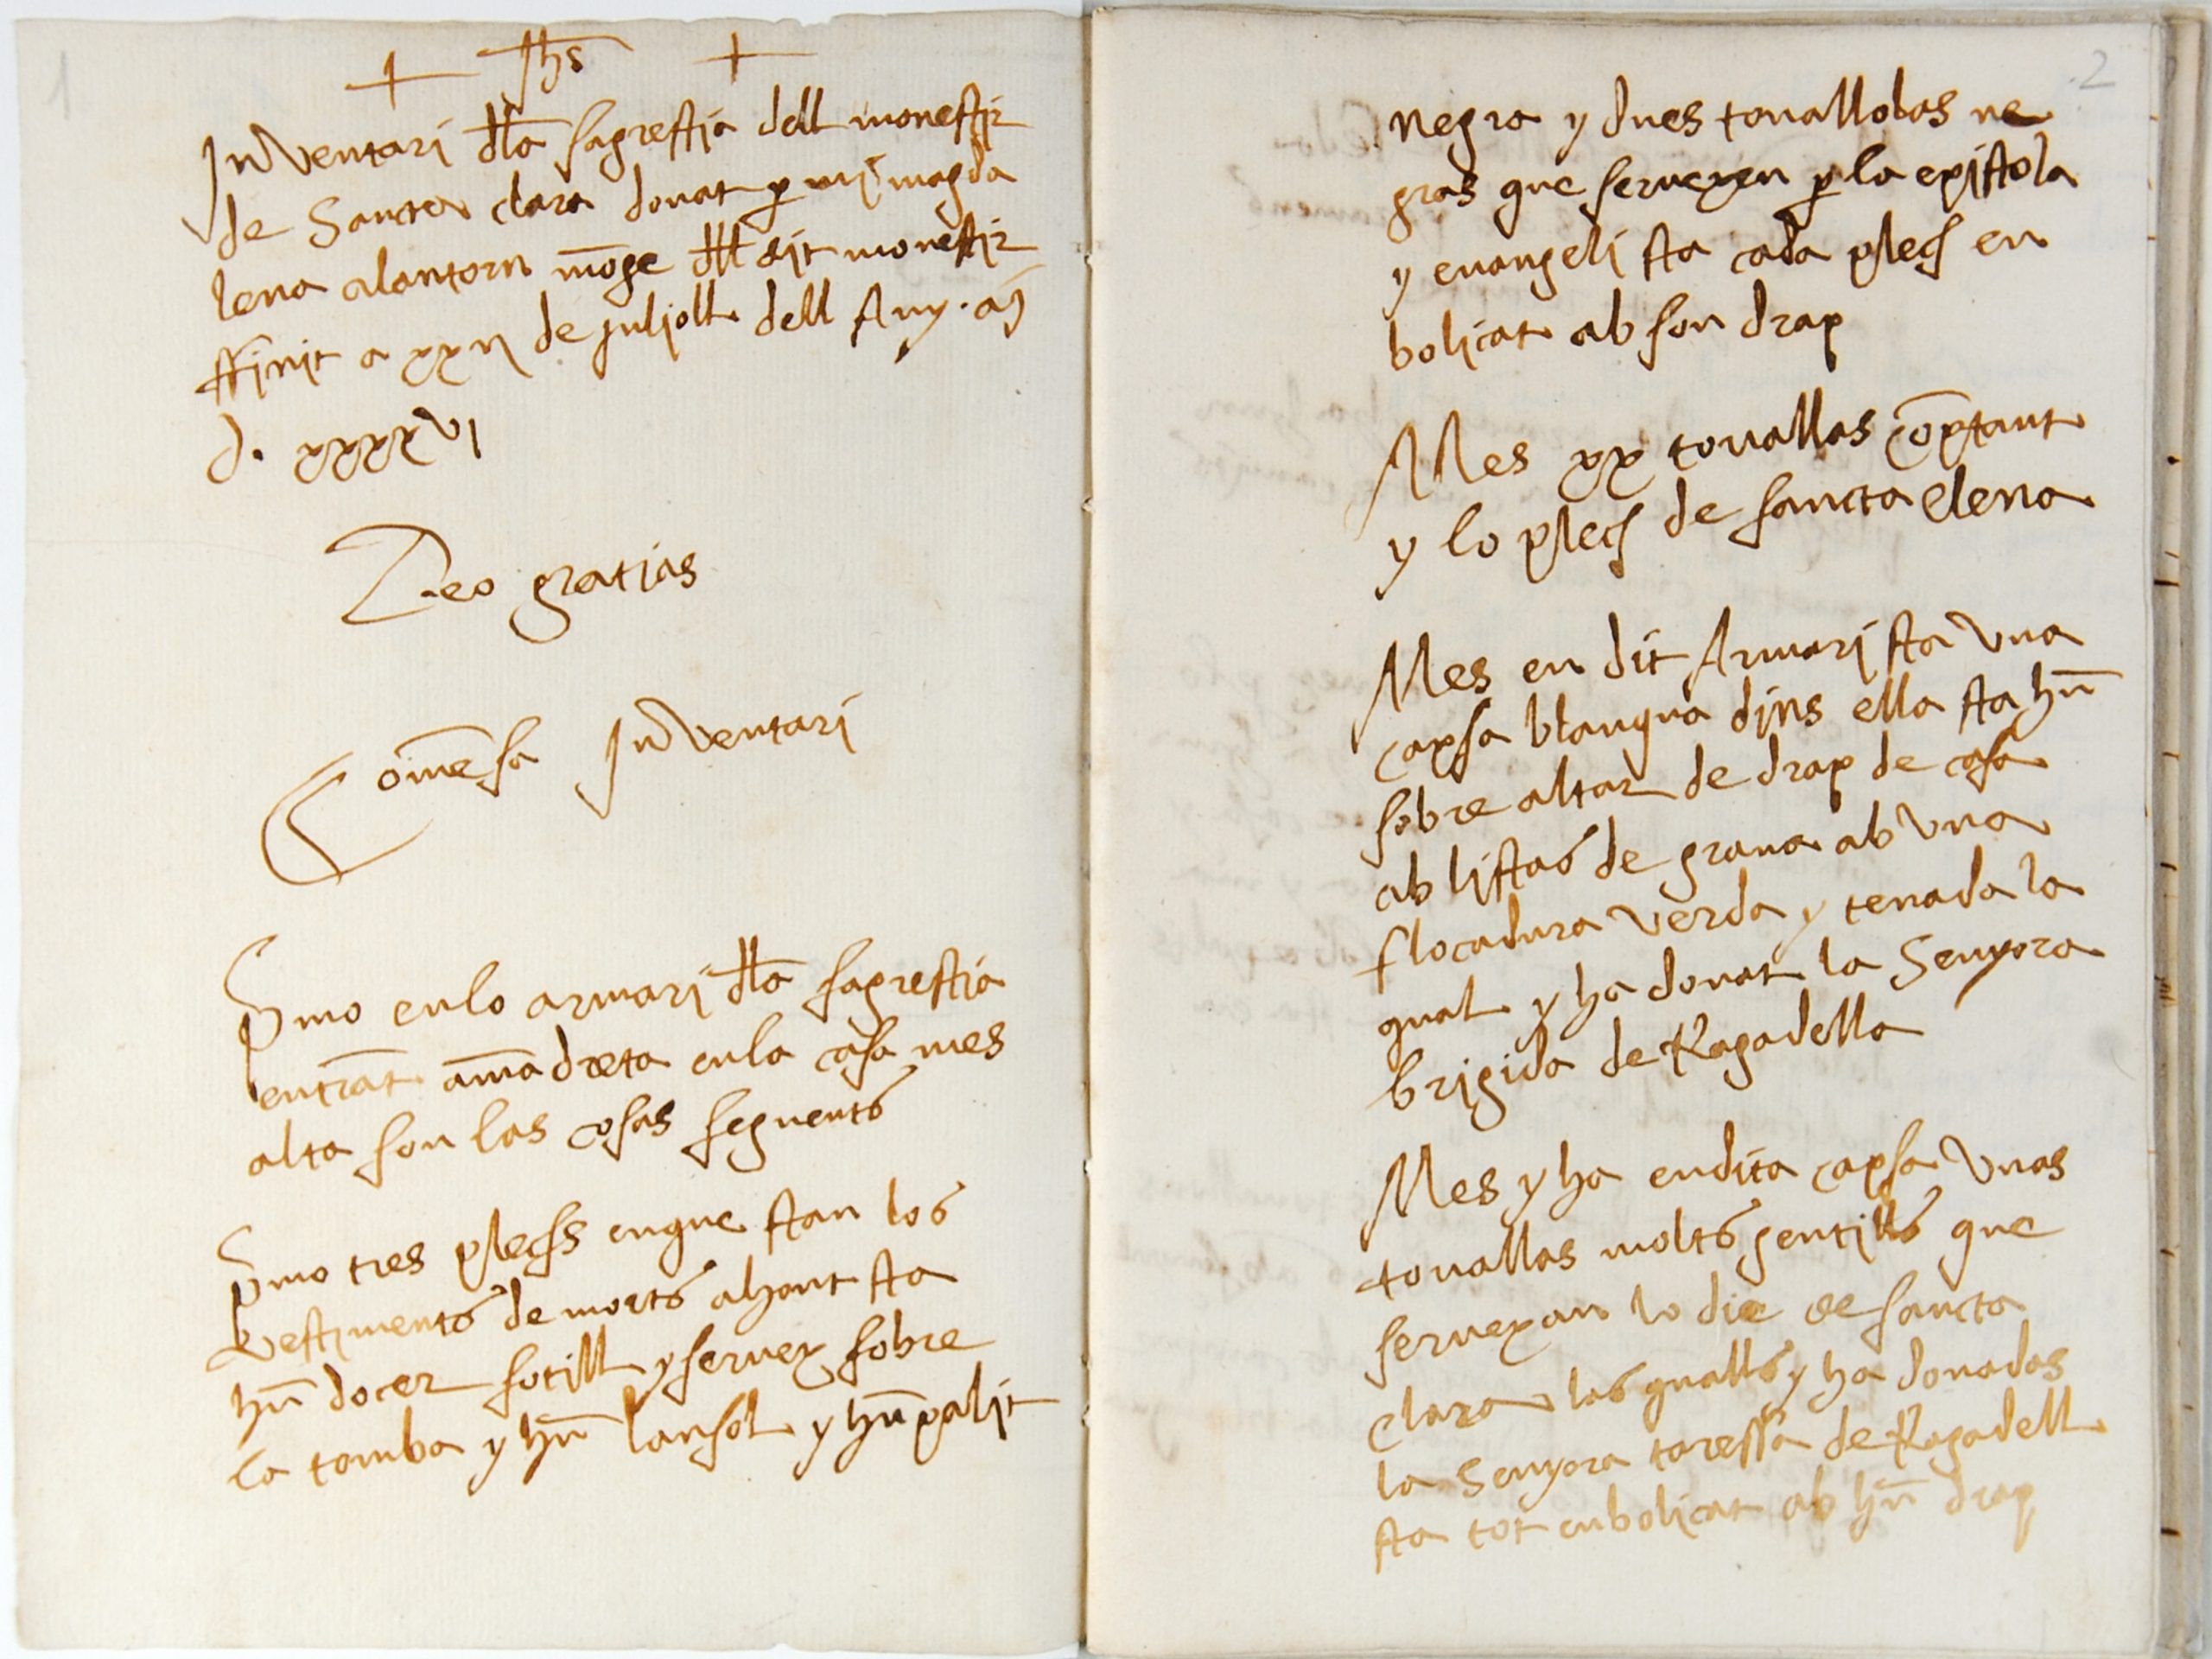 1
+ Jhs +
Inventari dla sagrestia dell monestir
de Sancta clara donat p mi magda
lena alantorn mōge dll dit monestir
ffinit a xxii de julioll dell Any
d. xxxxvi
Deo gratias
Comēsa Inventari
Pmo en lo armari dla sagrestia
entrāt a mā dreta en la casa mes
alta son las cosas seguents
pmo tres plechs en que stan los
vestiments de morts ahont sta
hū docer sotill y servex sobre
la tomba y hū lansol y hū palit
2
negra y dues tovallolas ne
gras que servexen p la epistola
y evangeli sta cada plech en
bolicat ab son drap
Mes xx tovallas cōptant
y lo plech de sancta elena
Mes en dit Armari sta una
capsa blanqua dins ella sta hū
sobre altar de drap de casa
ab listas de grana ab una
flocadura verda y tenada la
qual y ha donat la Senyora
brigida de Ragadella
Mes y ha en dita capsa unas
tovallas molts gentills que
servexan lo die de sancta
clara las qualls y ha donadas
la Senyora taressa de Ragadell
sta tot enbolicat ab hū drap